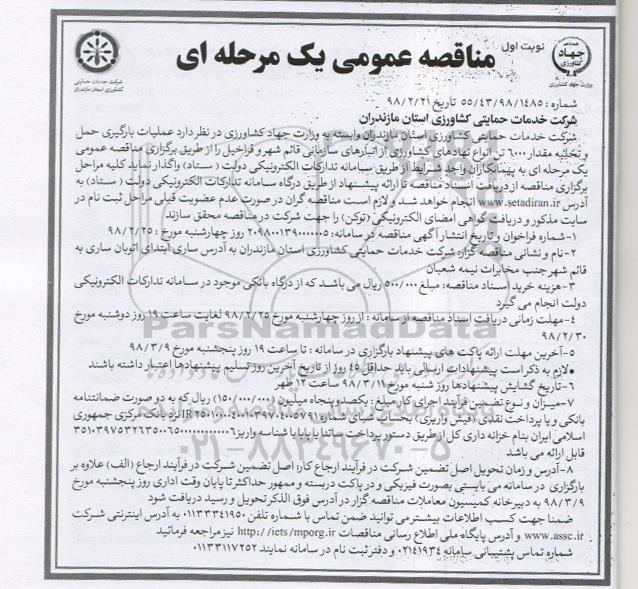 نوبت اول
مناقصه عمومی یک مرحله ای
جهاد کشاورزی
وزارت جهاد کشاورزی
شرکت خدمات حمایتی کشاورزی استان مازندران
شماره : ۵۵/۴۳/۹۸/۱۴۸۵ تاریخ ۹۸/۲/۲۱
شرکت خدمات حمایتی کشاورزی استان مازندران
شرکت خدمات حمایتی کشاورزی استان مازندران وابسته به وزارت جهاد کشاورزی در نظر دارد عملیات بارگیری حمل
و تخلیه مقدار ۶۰۰۰ تن انواع نهادهای کشاورزی از انبارهای سازمانی قائم شهر و قراخیل را از طریق برگزاری مناقصه عمومی
یک مرحله ای به پیمانکاران واجد شرایط از طریق سامانه تدارکات الکترونیکی دولت ( ستاد) واگذار نماید کلیه مراحل
برگزاری مناقصه از دریافت اسناد مناقصه تا ارائه پیشنهاد از طریق درگاه سامانه تدارکات الکترونیکی دولت ( ستاد) به
آدرس www.setadiran.ir انجام خواهد شد و لازم است مناقصه گران در صورت عدم عضویت قبلی مراحل ثبت نام در
سایت مذکور و دریافت گواهی امضای الکترونیکی (توکن) را جهت شرکت در مناقصه محقق سازند
۱-شماره فراخوان و تاریخ انتشار آگهی مناقصه در سامانه: ۲۰۹۸۰۰۱۳۹۰۰۰۰۰۰۵ روز چهارشنبه مورخ : ۹۸/۲/۲۵
۲-نام و نشانی مناقصه گزار: شرکت خدمات حمایتی کشاورزی استان مازندران به آدرس ساری ابتدای اتوبان ساری به
قائم شهر جنب مخابرات نیمه شعبان
۳-هزینه خرید اسناد مناقصه: مبلغ ۵۰۰/۰۰۰ ریال می باشد که از درگاه بانکی موجود در سامانه تدارکات الکترونیکی
دولت انجام می گیرد
۴-مهلت زمانی دریافت اسناد مناقصه از سامانه : از روز چهارشنبه مورخ ۹۸/۲/۲۵ لغایت ساعت ۱۹ روز دوشنبه مورخ
۹۸/۲/۳۰
۵-آخرین مهلت ارائه پاکت های پیشنهاد بارگزاری در سامانه : تا ساعت ۱۹ روز پنجشنبه مورخ ۹۸/۳/۹
•لازم به ذکر است پیشنهادات ارسالی باید حداقل ۴۵ روز از تاریخ آخرین روز تسلیم پیشنهادها اعتبار داشته باشند
۶-تاریخ گشایش پیشنهادها روز شنبه مورخ ۹۸/۳/۱۱ ساعت ۱۲ ظهر
۷-میزان و نوع تضمین فرآیند اجرای کار مبلغ : یکصد و پنجاه میلیون (۱۵۰/۰۰۰/۰۰۰) ریال که به دو صورت ضمانتنامه
بانکی و یا پرداخت نقدی (فیش واریزی) بحساب شبای شماره نزد بانک مرکزی جمهوری
اسلامی ایران بنام خزانه داری کل از طریق دستور پرداخت ساتنا یا پایا با شناسه واریز
قابل ارائه می باشد
۸-آدرس و زمان تحویل اصل تضمین شرکت در فرآیند ارجاع کار: اصل تضمین شرکت در فرآیند ارجاع (الف) علاوه بر
بارگزاری در سامانه می بایستی بصورت فیزیکی و در پاکت دربسته و ممهور حداکثر تا پایان وقت اداری روز پنجشنبه مورخ
۹۸/۳/۹ به دبیرخانه کمیسیون معاملات مناقصه گزار در آدرس فوق الذکر تحویل و رسید دریافت شود
ضمنا جهت کسب اطلاعات بیشتر می توانید ضمن تماس با شماره تلفن ۰۱۱۳۳۳۴۱۹۵۰ به آدرس اینترنتی شرکت
www.assc.ir و آدرس پایگاه ملی اطلاع رسانی مناقصات http://iets/mporg.ir نیز مراجعه فرمائید
شماره تماس پشتیبانی سامانه ۰۲۱۴۱۹۳۴ و دفتر ثبت نام در سامانه نمایند ۰۱۱۳۳۱۱۷۲۵۲
ParsNamadData
۰۲۱-۸۸۳۴۹۶۷۰-۵